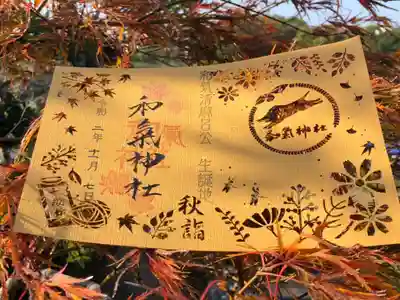 和氣清麻呂公 生誕地
和氣神社
秋詣
和氣神社
令和 二年十一月 七日